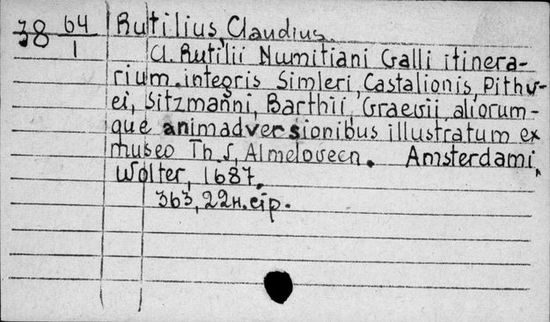 38 64/1 Rutilius, Claudius.
Cl. Rutilii Numitiani Galli itinera-
rium integris Simleri, Castalionis, Pithv-
ei, Sitzmanni, Barthii, Graevii, aliorum-
que animadversionibus illustratum ex
museo Th. J. Almeloveen. Amsterdami,
Wolter, 1687.
363, 22 н. стр.